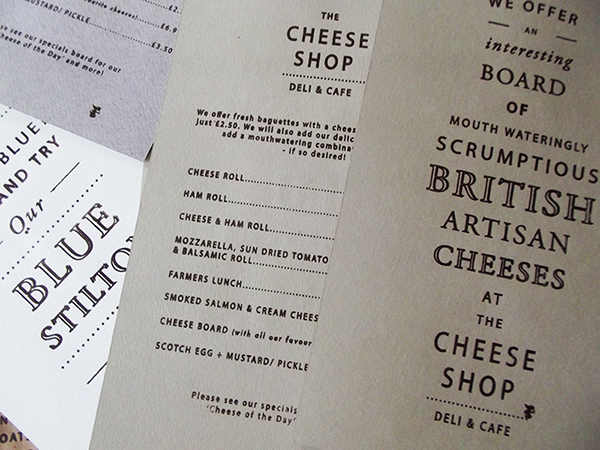 favourite cheeses)....£2.
£6.9
MUSTARD/ PICKLE
£3.50
see our specials board for our
'Cheese of the Day' and more!
BLUE
AND TRY
Our
BLUE
STILTO
OAT
THE
CHEESE
SHOP
DELI & CAFE
We offer fresh baguettes with a chees
just £2.50. We will also add our delic
add a mouthwatering combina
- if so desired!
CHEESE ROLL
HAM ROLL
CHEESE & HAM ROLL
MOZZARELLA, SUN DRIED TOMATO
& BALSAMIC ROLL
FARMERS LUNCH
SMOKED SALMON & CREAM CHEES
CHEESE BOARD (with all our favour
SCOTCH EGG + MUSTARD/ PICKLE
Please see our specials
'Cheese of the Day'
WE OFFER
AN
interesting
BOARD
OF
MOUTH WATERINGLY
SCRUMPTIOUS
BRITISH
ARTISAN
CHEESES
AT
THE
CHEESE
SHOP
DELI & CAFE